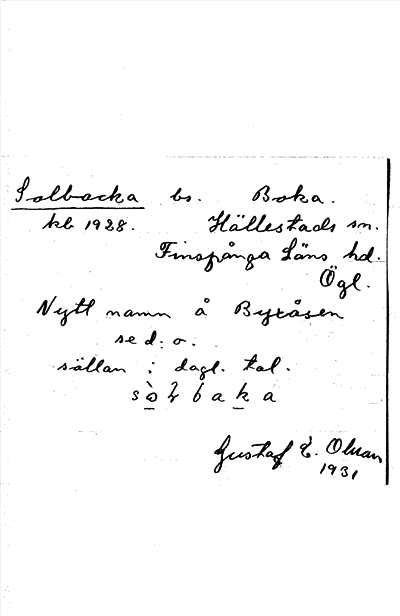 Solbacka bs. Boka.
kb 1928. Hällestads sn.
Finspånga Läns hd.
Ögl.
Nytt namn å Byxåsen
se d. o.
sällan i dagl. tal.
Gustaf E. Olman
1931